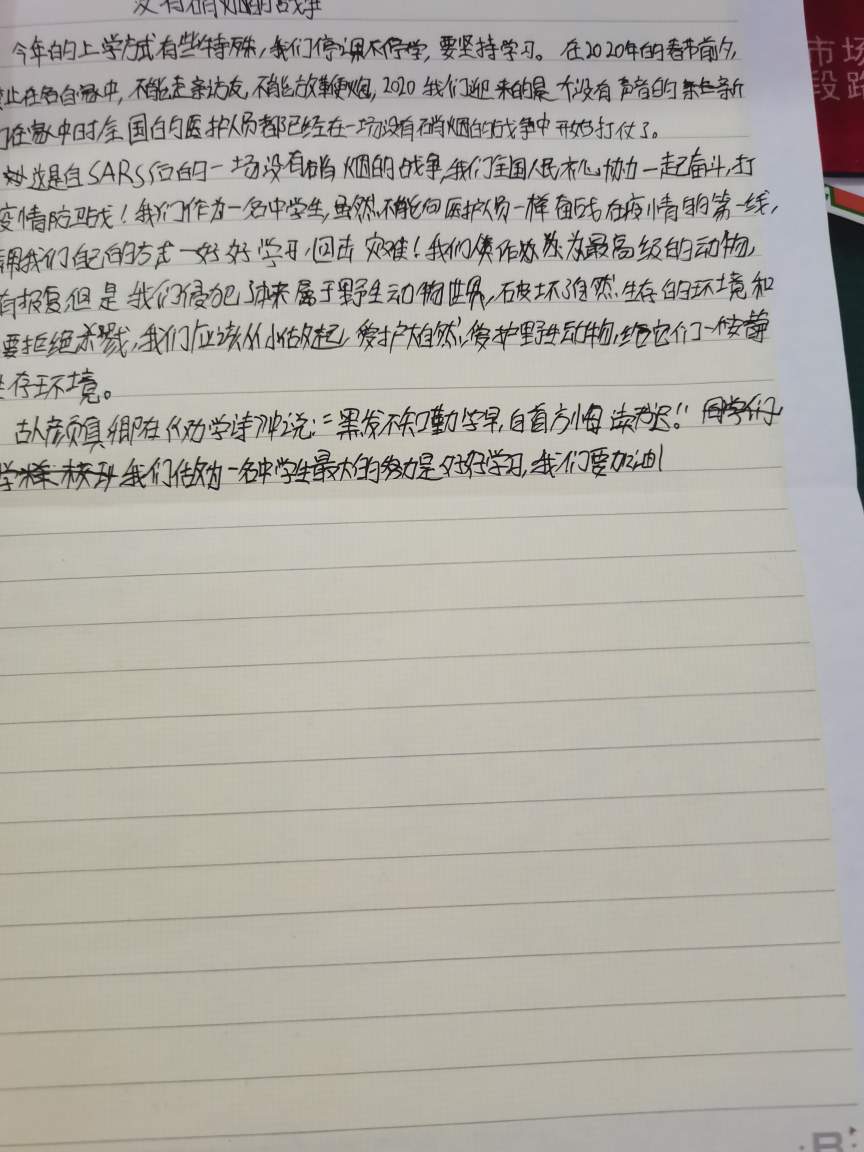 没有硝烟的战争
今年的上学方式有些特殊，我们停课不停学，要坚持学习。在2020年的春节前夕，
止在各自家中，不能走亲访友，不能放鞭炮，2020我们迎来的是个没有声音的新
们在家中时全国的医护人员都已经在一场没有硝烟的战争中开始打仗了。
这是自SARS后的一场没有硝烟的战争，我们全国人民齐心协力一起奋斗，打
疫情防卫战！我们作为一名中学生，虽然不能向医护人员一样奋战在疫情的第一线，
用我们自己的方式一好好学习，回击灾难！我们作为最高级的动物，
有报复但是我们侵犯了本来属于野生动物世界，破坏了自然生存的环境和
要拒绝杀戮，我们应该从小做起，爱护大自然，爱护野生动物，给它们一个安静
生存环境。
古人颜真卿在《劝学诗》中说：“黑发不知勤学早，白首方悔读书迟！”同学们
我们做为一名中学生最大的努力是好好学习，我们要加油！
市场
段路
B